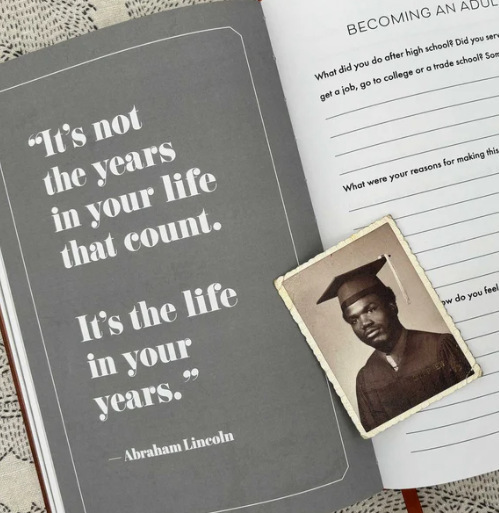 “It’s not
the years
in your life
that count.
It’s the life
in your
years.”
— Abraham Lincoln
BECOMING AN ADUL
What did you do after high school? Did you serv
get a job, go to college or a trade school? Som
What were your reasons for making this
ow do you feel